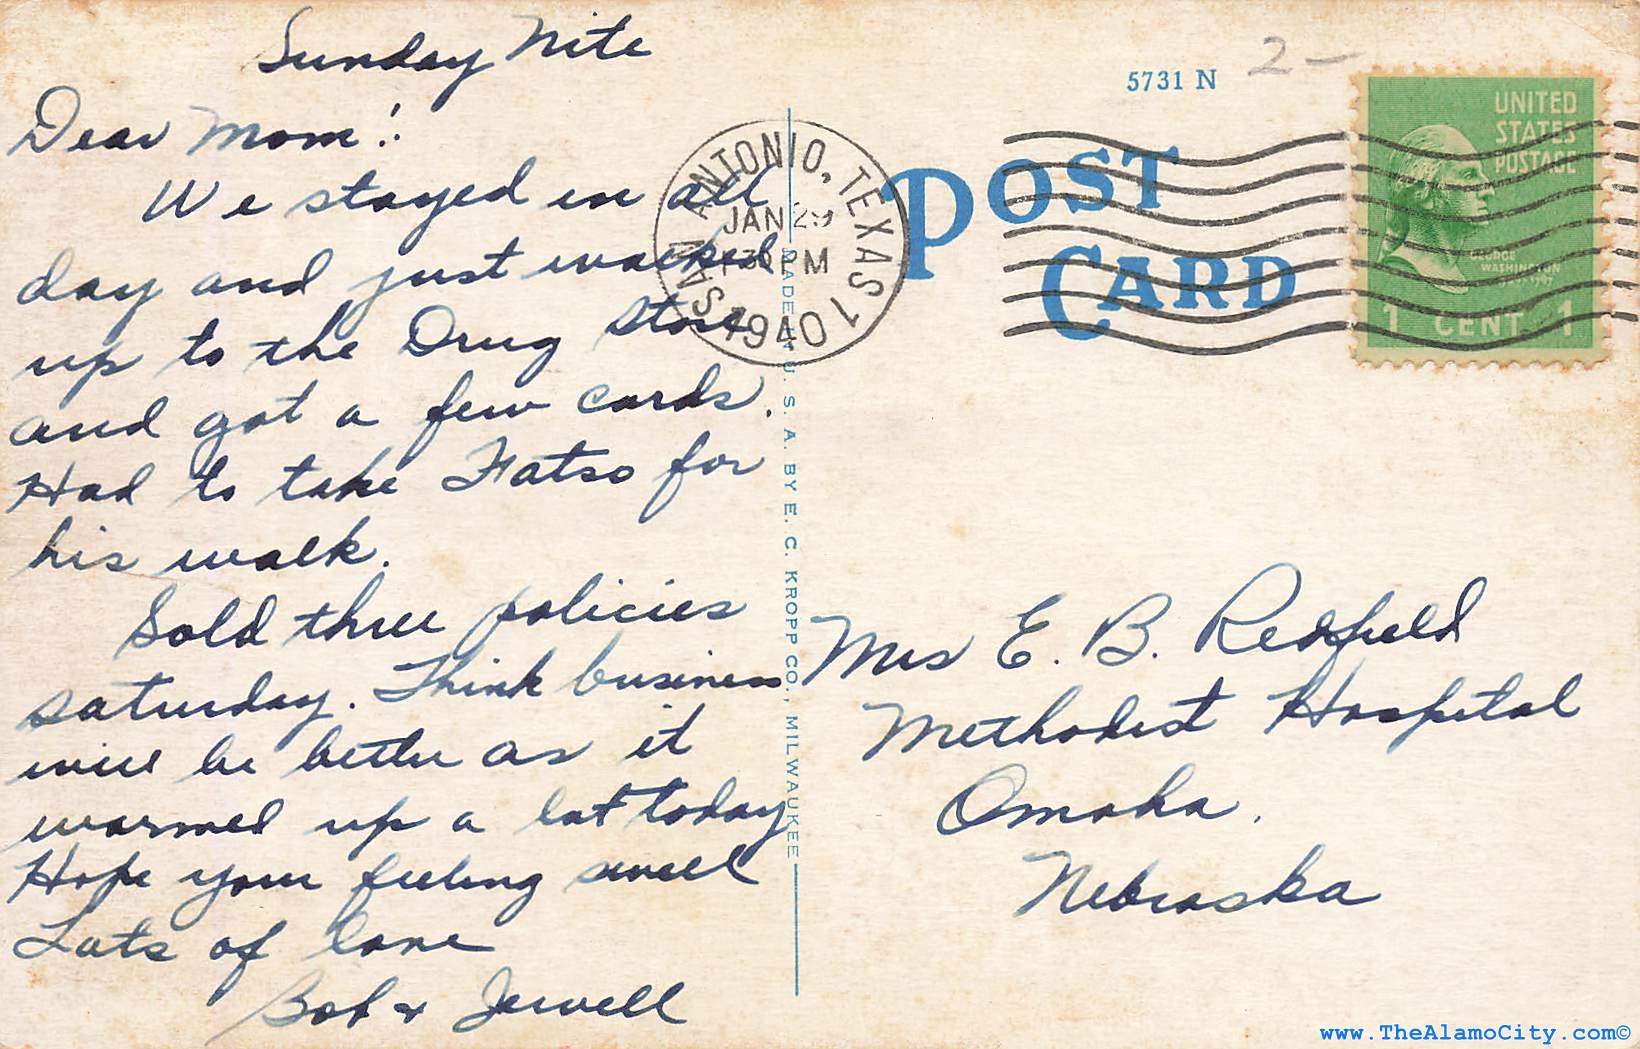 Sunday Nite
Dear Mom!
We stayed in all
day and just walked
up to the Drug Store
and got a few cards.
Had to take Fatso for
his walk.
Sold three policies
saturday. Think business
will be better as it
warmed up a lot today
Hope your feeling swell
Lots of love
Bob & Jewell
SAN ANTONIO, TEXAS 1
JAN 29
30 PM
1940
MADE IN U. S. A. BY E. C. KROPP CO., MILWAUKEE
5731 N
2-
POST
CARD
UNITED
STATES
POSTAGE
GEORGE
WASHINGTON
1 CENT 1
Mrs E. B. Redfield
Methodist Hospital
Omaha.
Nebraska
www.TheAlamoCity.com©